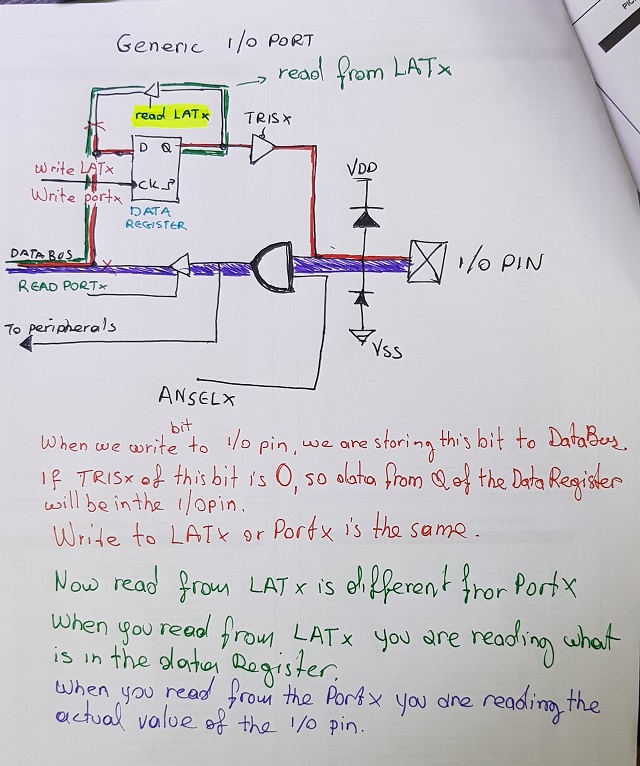 Generic I/O PORT
read from LATx
read LATx
TRISx
D Q
Write LATx
Write portx
CK
DATA
REGISTER
VDD
DATA BUS
READ PORTx
I/O PIN
To peripherals
VSS
ANSELx
bit
When we write to I/O pin, we are storing this bit to DataBus
If TRISx of this bit is 0, so data from Q of the Data Register
will be in the I/O pin.
Write to LATx or Portx is the same.
Now read from LATx is different fror Portx
When you read from LATx you are reading what
is in the data Register.
When you read from the Portx you are reading the
actual value of the I/O pin.